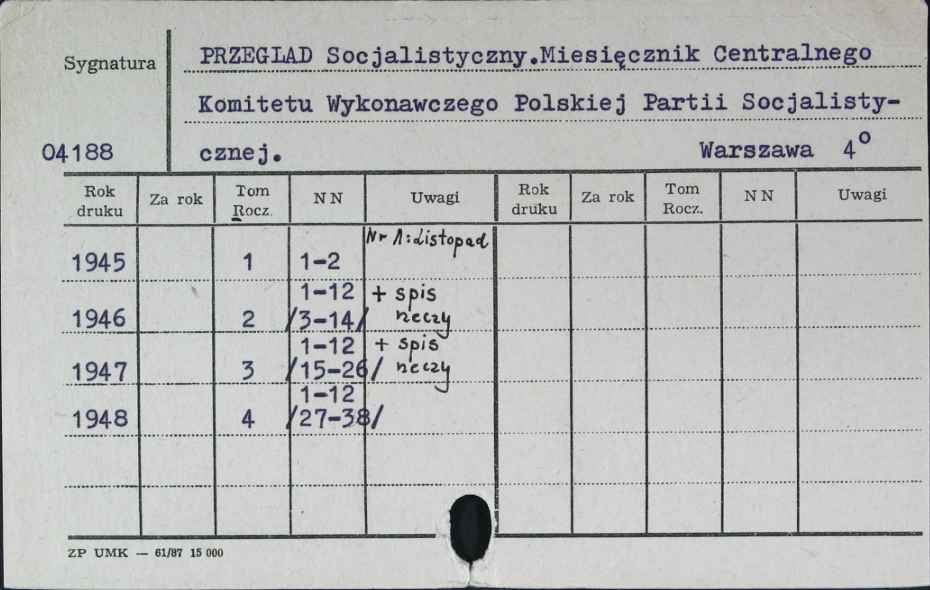 Sygnatura PRZEGLAD Socjalistyczny.Miesięcznik Centralnego
Komitetu Wykonawczego Polskiej Partii Socjalisty-
04188 cznej. Warszawa 4º
Rok druku Za rok Tom Rocz. N N Uwagi Rok druku Za rok Tom Rocz. N N Uwagi
Nr 1: Listopad
1945 1 1-2
1-12 + spis
1946 2 /3-14/ rzeczy
1-12 + spis
1947 3 /15-26/ rzeczy
1-12
1948 4 /27-38/
ZP UMK — 61/87 15 000